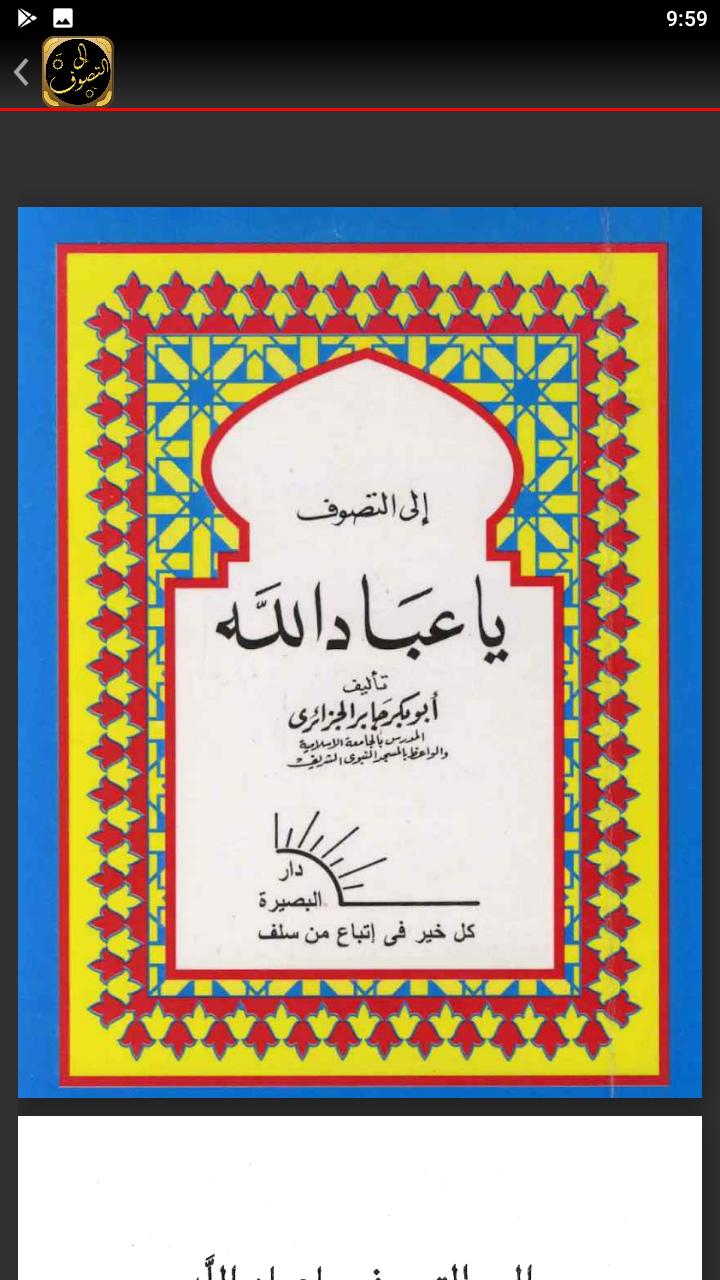 9:59
إلى التصوف
إلى التصوف
يا عبَاد اللَّه
تأليف
أبو بكر جَابر الجزائرى
المدرس بالجامعة الاسلامية
والواعظ بالمسجد النبوى الشريف
دار
البصيرة
كل خير فى إتباع من سلف